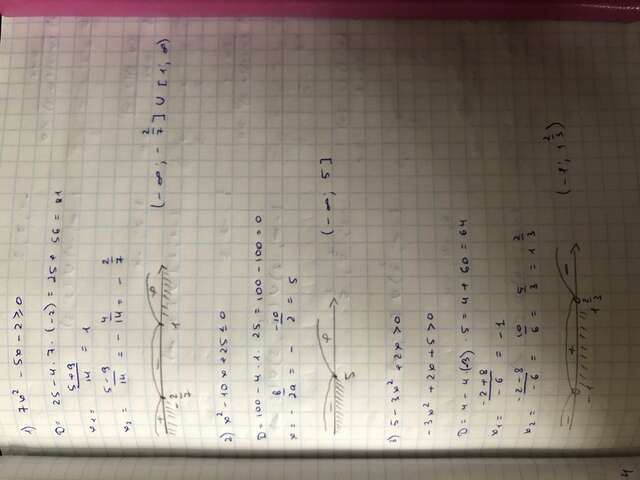 1) 7x² - 5x - 2 ≥ 0
D = 25 - 4 · 7 · (-2) = 25 + 56 = 81
x₁ = (5+9)/14 = 1
x₂ = (5-9)/14 = - 4/14 = - 2/7
+ - +
-2/7 1
(-∞; - 2/7] ∪ [1; ∞)
2) x² - 10x + 25 ≤ 0
D = 100 - 4 · 1 · 25 = 100 - 100 = 0
x = - b/2a = - -10/2 = 5
- +
5
(-∞; 5]
3) 5 - 3x² + 2x > 0
-3x² + 2x + 5 > 0
D = 4 - 4·(-3) · 5 = 4 + 60 = 64
x₁ = (-2+8)/-6 = -1
x₂ = (-2-8)/-6 = 10/6 = 5/3 = 1 2/3
- + -
-1 1 2/3
(-1; 1 2/3)
4